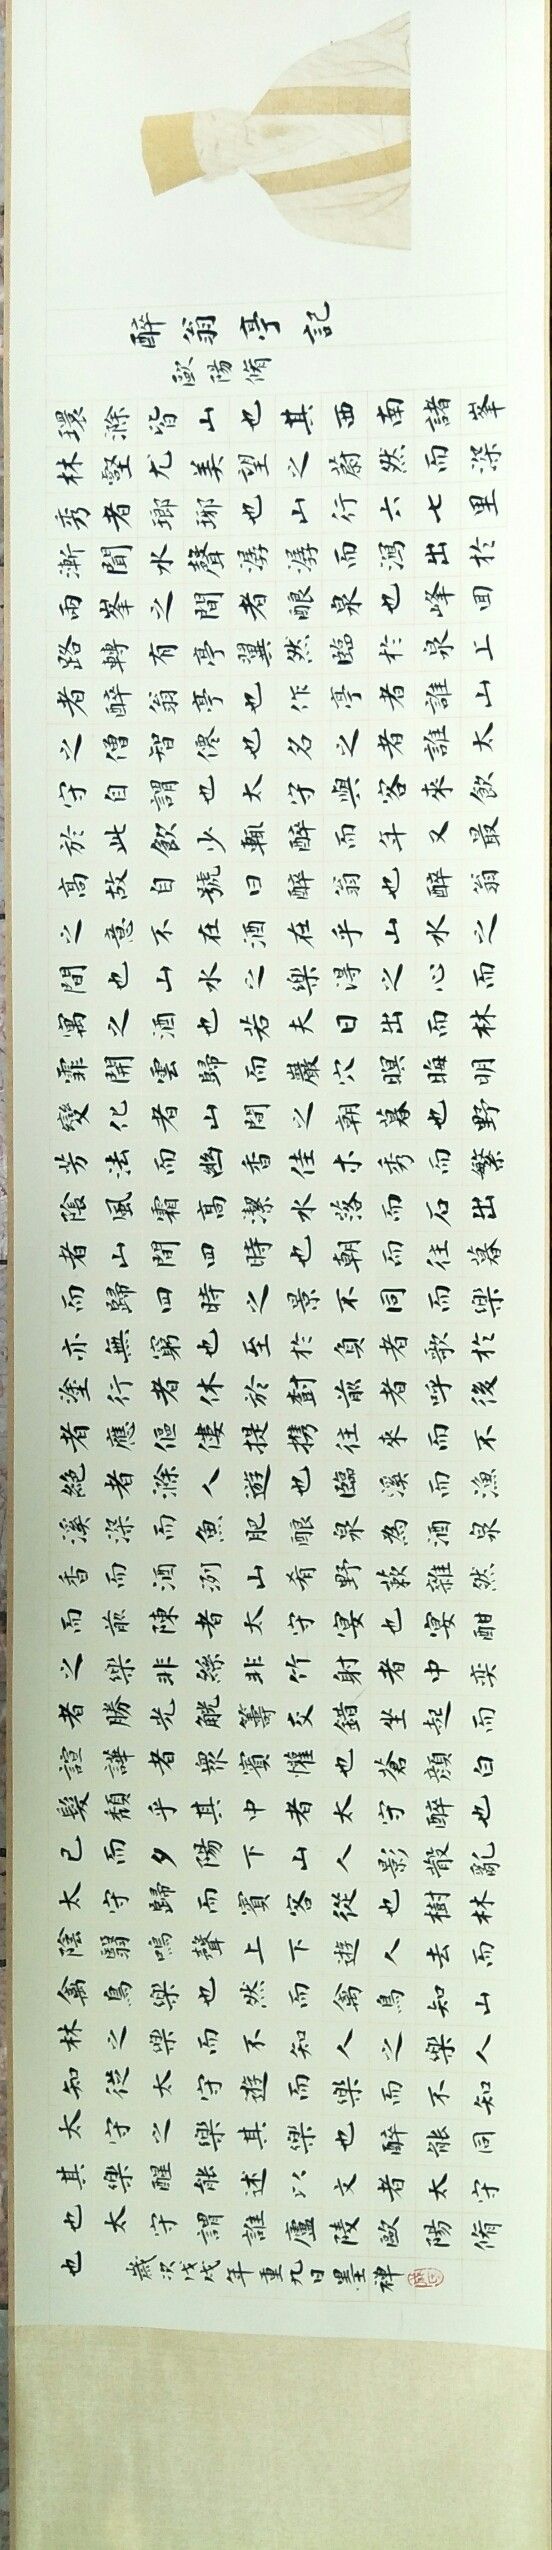 醉翁亭記
歐陽脩
環滁皆山也其西南諸峯
林壑尤美望之蔚然而深
秀者瑯琊也山行六七里
漸聞水聲潺潺而瀉出於
兩峯之間者釀泉也峰回
路轉有亭翼然臨於泉上
者醉翁亭也作亭者誰山
之僧智僊也名之者誰太
守自謂也太守與客來飲
於此飲少輒醉而年又最
高故自號曰醉翁也醉翁
之意不在酒在乎山水之
間也山水之樂得之心而
寓之酒也若夫日出而林
霏開雲歸而巖穴暝晦明
變化者山間之朝暮也野
芳法而幽香佳木秀而繁
陰風霜高潔水落而石出
者山間四時也朝而往暮
而歸四時之景不同而樂
亦無窮也至於負者歌於
塗行者休於樹前者呼後
者應傴僂提攜往來而不
絕者滁人遊也臨溪而漁
溪深而魚肥釀泉為酒泉
香而酒洌山肴野蔌雜然
而前陳者太守宴也宴酣
之樂非絲非竹射者中奕
者勝光觥籌交錯坐起而
諠譁者眾賓懽也蒼顏白
髮頹乎其中者太守醉也
已而夕陽下山人影散亂
太守歸而賓客從也樹林
陰翳鳴聲上下遊人去而
禽鳥樂也然而禽鳥知山
林之樂而不知人之樂人
知從太守遊而樂而不知
太守之樂其樂也醉能同
其樂醒能述以文者太守
也太守謂誰廬陵歐陽脩
也
歲次戊戌年重九日墨禪